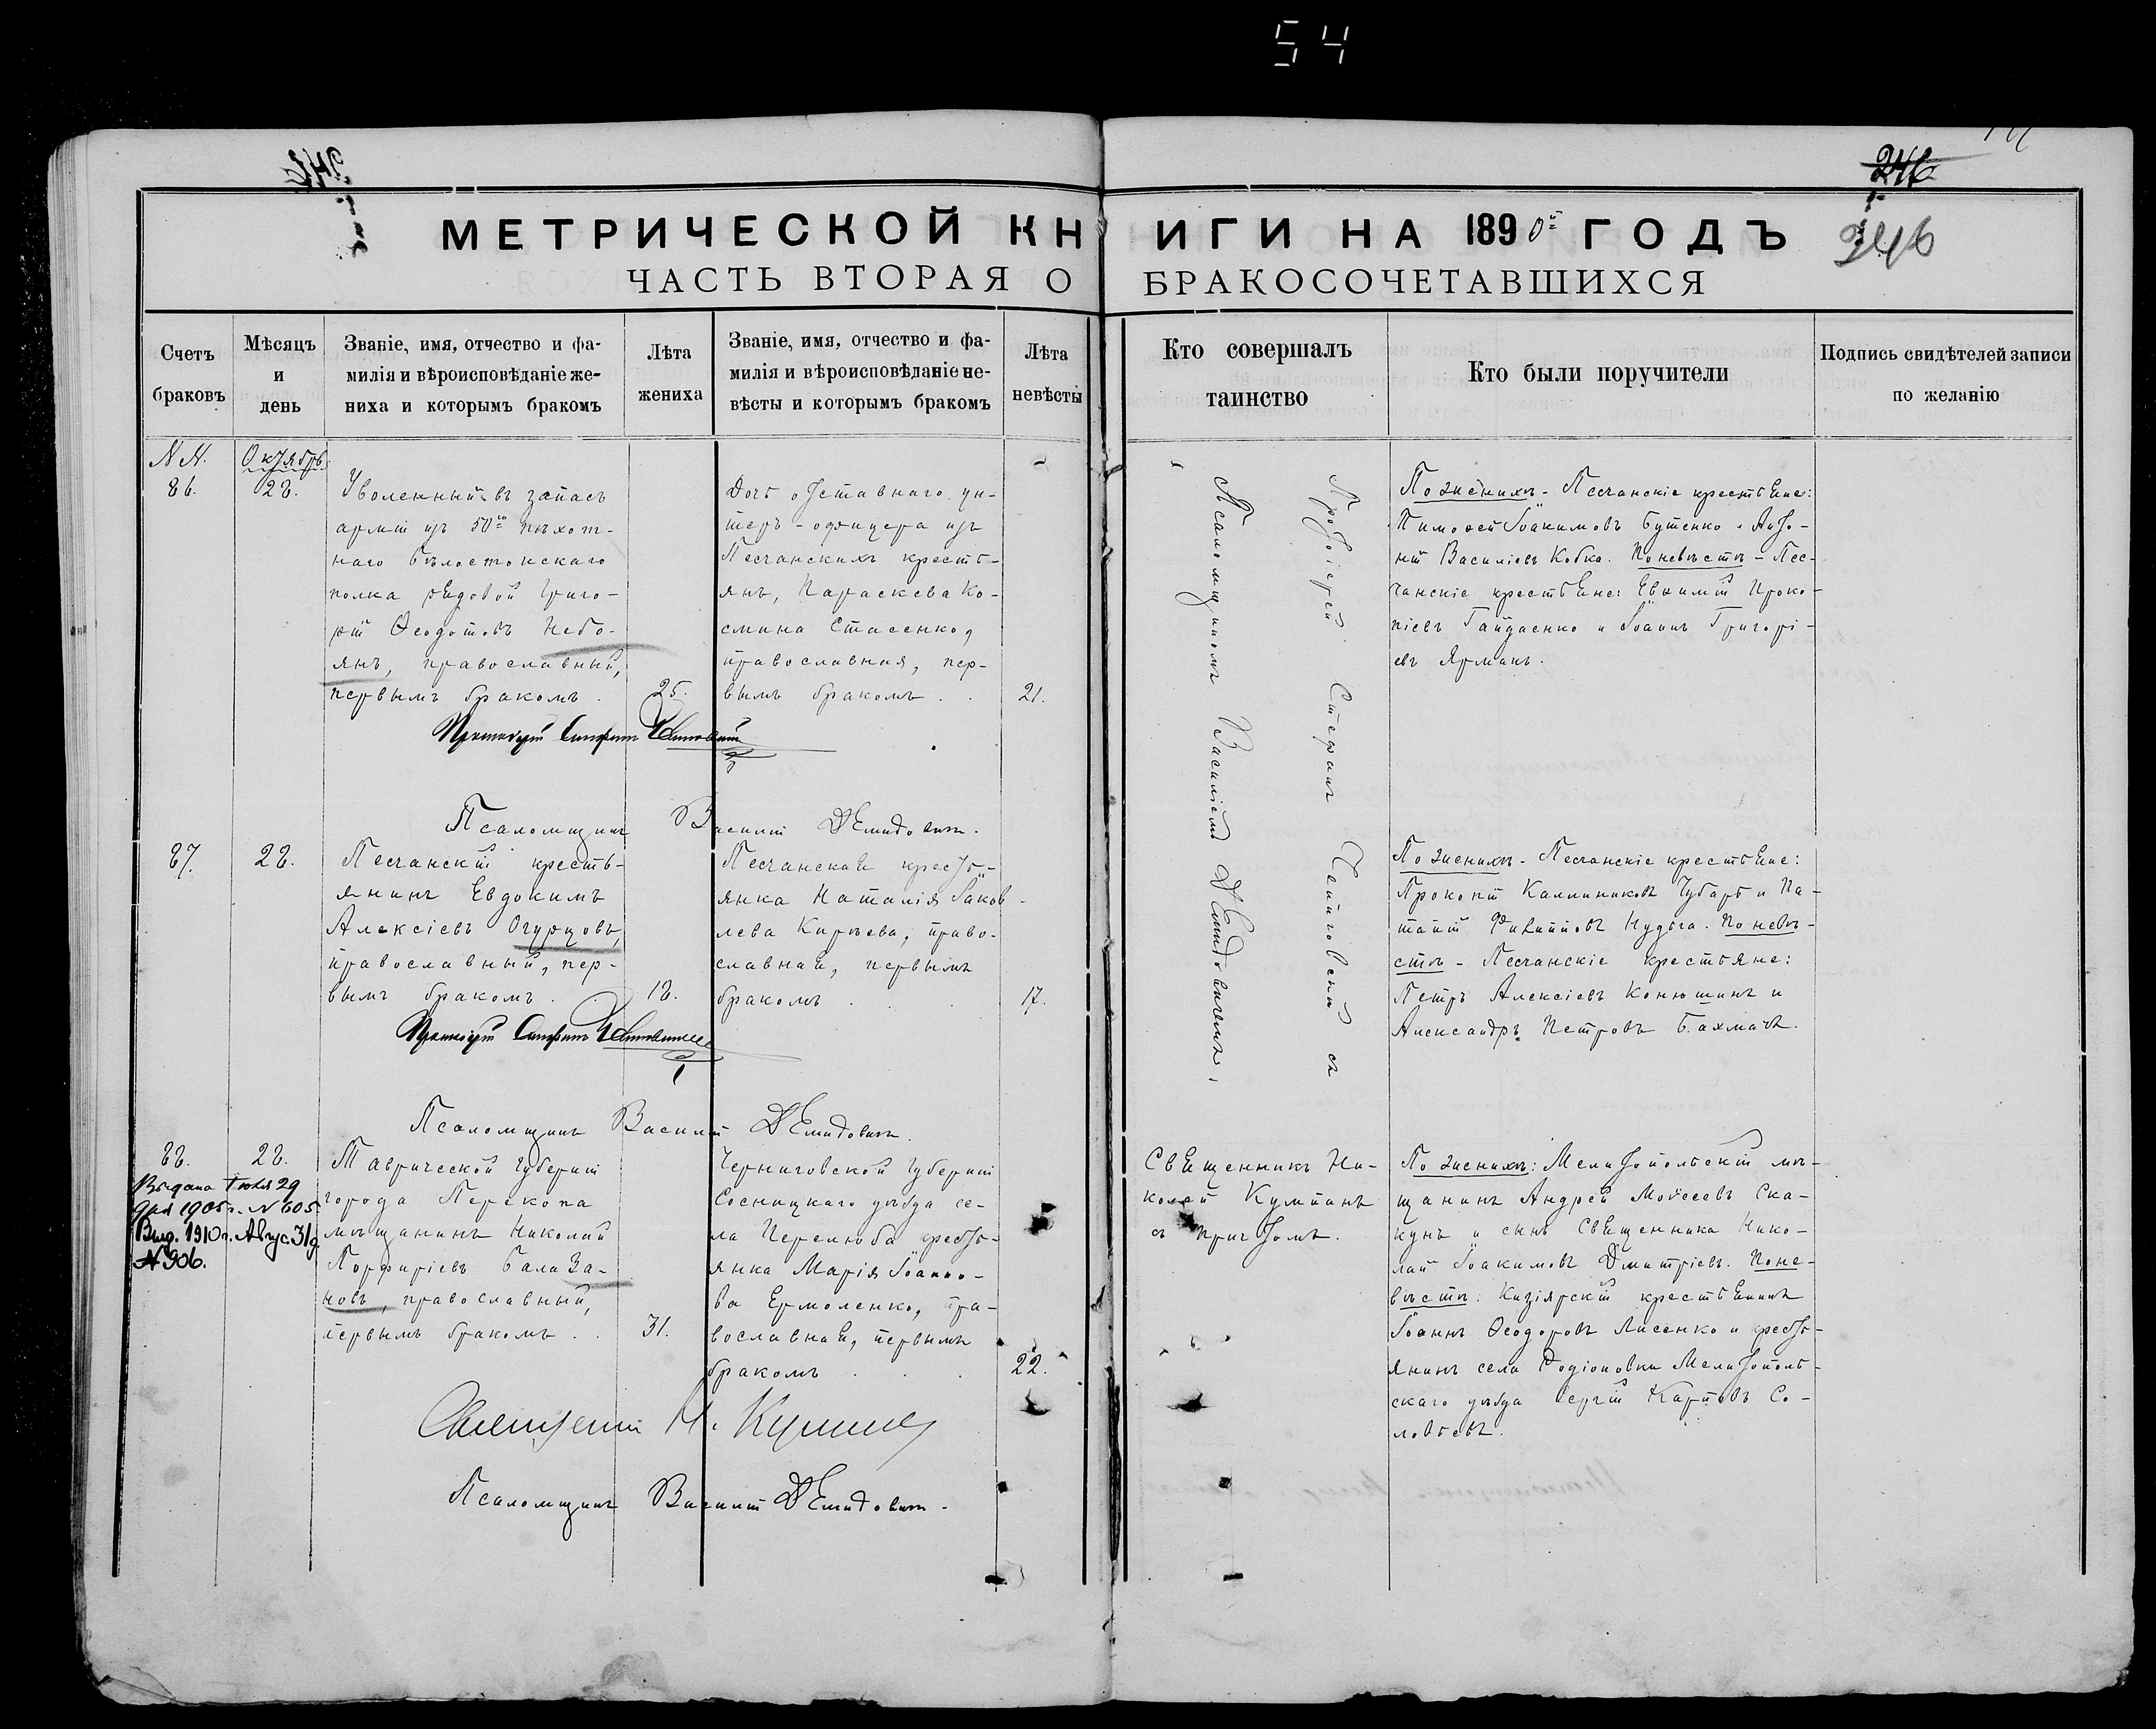 54
246
246
МЕТРИЧЕСКОЙ КНИГИ НА 1890й ГОДЪ
ЧАСТЬ ВТОРАЯ О БРАКОСОЧЕТАВШИХСЯ
Счетъ браковъ
Мѣсяцъ и день
Званіе, имя, отчество и фа-
милія и вѣроисповѣданіе же-
ниха и которымъ бракомъ
Лѣта жениха
Званіе, имя, отчество и фа-
милія и вѣроисповѣданіе не-
вѣсты и которымъ бракомъ
Лѣта невѣсты
Кто совершалъ таинство
Кто были поручители
Подпись свидѣтелей записи
по желанію
NN.
Октябрь.
86.
28.
Уволенный въ запасъ
арміи изъ 50го пѣхот-
наго Бѣлостокскаго
полка рядовой Григо-
рій Ѳеодотовъ Небо-
янъ, православный,
первымъ бракомъ.
25.
Дочь отставнаго ун-
теръ-офицера изъ
Песчанскихъ кресть-
янъ, Параскева Ко-
смина Стасенко,
православная, пер-
вымъ бракомъ . .
21.
Протоіерей Стефанъ
Псаломщикъ Василій Демидовичъ.
Протоіерей Стефанъ съ
Псаломщикомъ Василіемъ Демидовичемъ,
По женихѣ - Песчанскіе крестьяне:
Тимоѳей Іоакимовъ Бутенко и Анто-
ній Василіевъ Кобка. По невѣстѣ - Пес-
чанскіе крестьяне: Евѳимій Проко-
піевъ Гайдаенко и Іоаннъ Григорі-
евъ Ярманъ.
87.
28.
Песчанскій кресть-
янинъ Евдокимъ
Алексіевъ Огурцовъ,
православный, пер-
вымъ бракомъ .
18.
Песчанская кресть-
янка Наталія Іаков-
лева Кирѣева, право-
славная, первымъ
бракомъ . . .
17.
Протоіерей Стефанъ
Псаломщикъ Василій Демидовичъ.
По женихѣ - Песчанскіе крестьяне:
Прокопій Каллиниковъ Чубарь и Па-
таній Филипповъ Нудьга. По невѣ-
стѣ - Песчанскіе крестьяне:
Петръ Алексіевъ Конюшинъ и
Александръ Петровъ Бахмачъ.
88.
28.
Выдана Іюля 29
дня 1905 г. N 605
Выд. 1910 г. Авгус. 31 д.
N 906.
Таврической губерніи
города Перекопа
мѣщанинъ Николай
Порфиріевъ Балаза-
новъ, православный,
первымъ бракомъ . .
31.
Черниговской губерніи
Сосницкаго уѣзда се-
ла Перелюба кресть-
янка Марія Іоанно-
ва Ермоленко, пра-
вославная, первымъ
бракомъ . . .
22.
Священникъ Ни-
колай Кумпанъ
съ причтомъ.
По женихѣ: Мелитопольскій мѣ-
щанинъ Андрей Моѵсеевъ Ска-
кунъ и сынъ священника Нико-
лай Іоакимовъ Дмитріевъ. По не-
вѣстѣ: Кизіярскій крестьянинъ
Іоаннъ Ѳеодоровъ Лисенко и кресть-
янинъ села Родіоновки Мелитополь-
скаго уѣзда Сергій Карповъ Со-
ловьевъ.
Священникъ Н. Кумпанъ
Псаломщикъ Василій Демидовичъ.